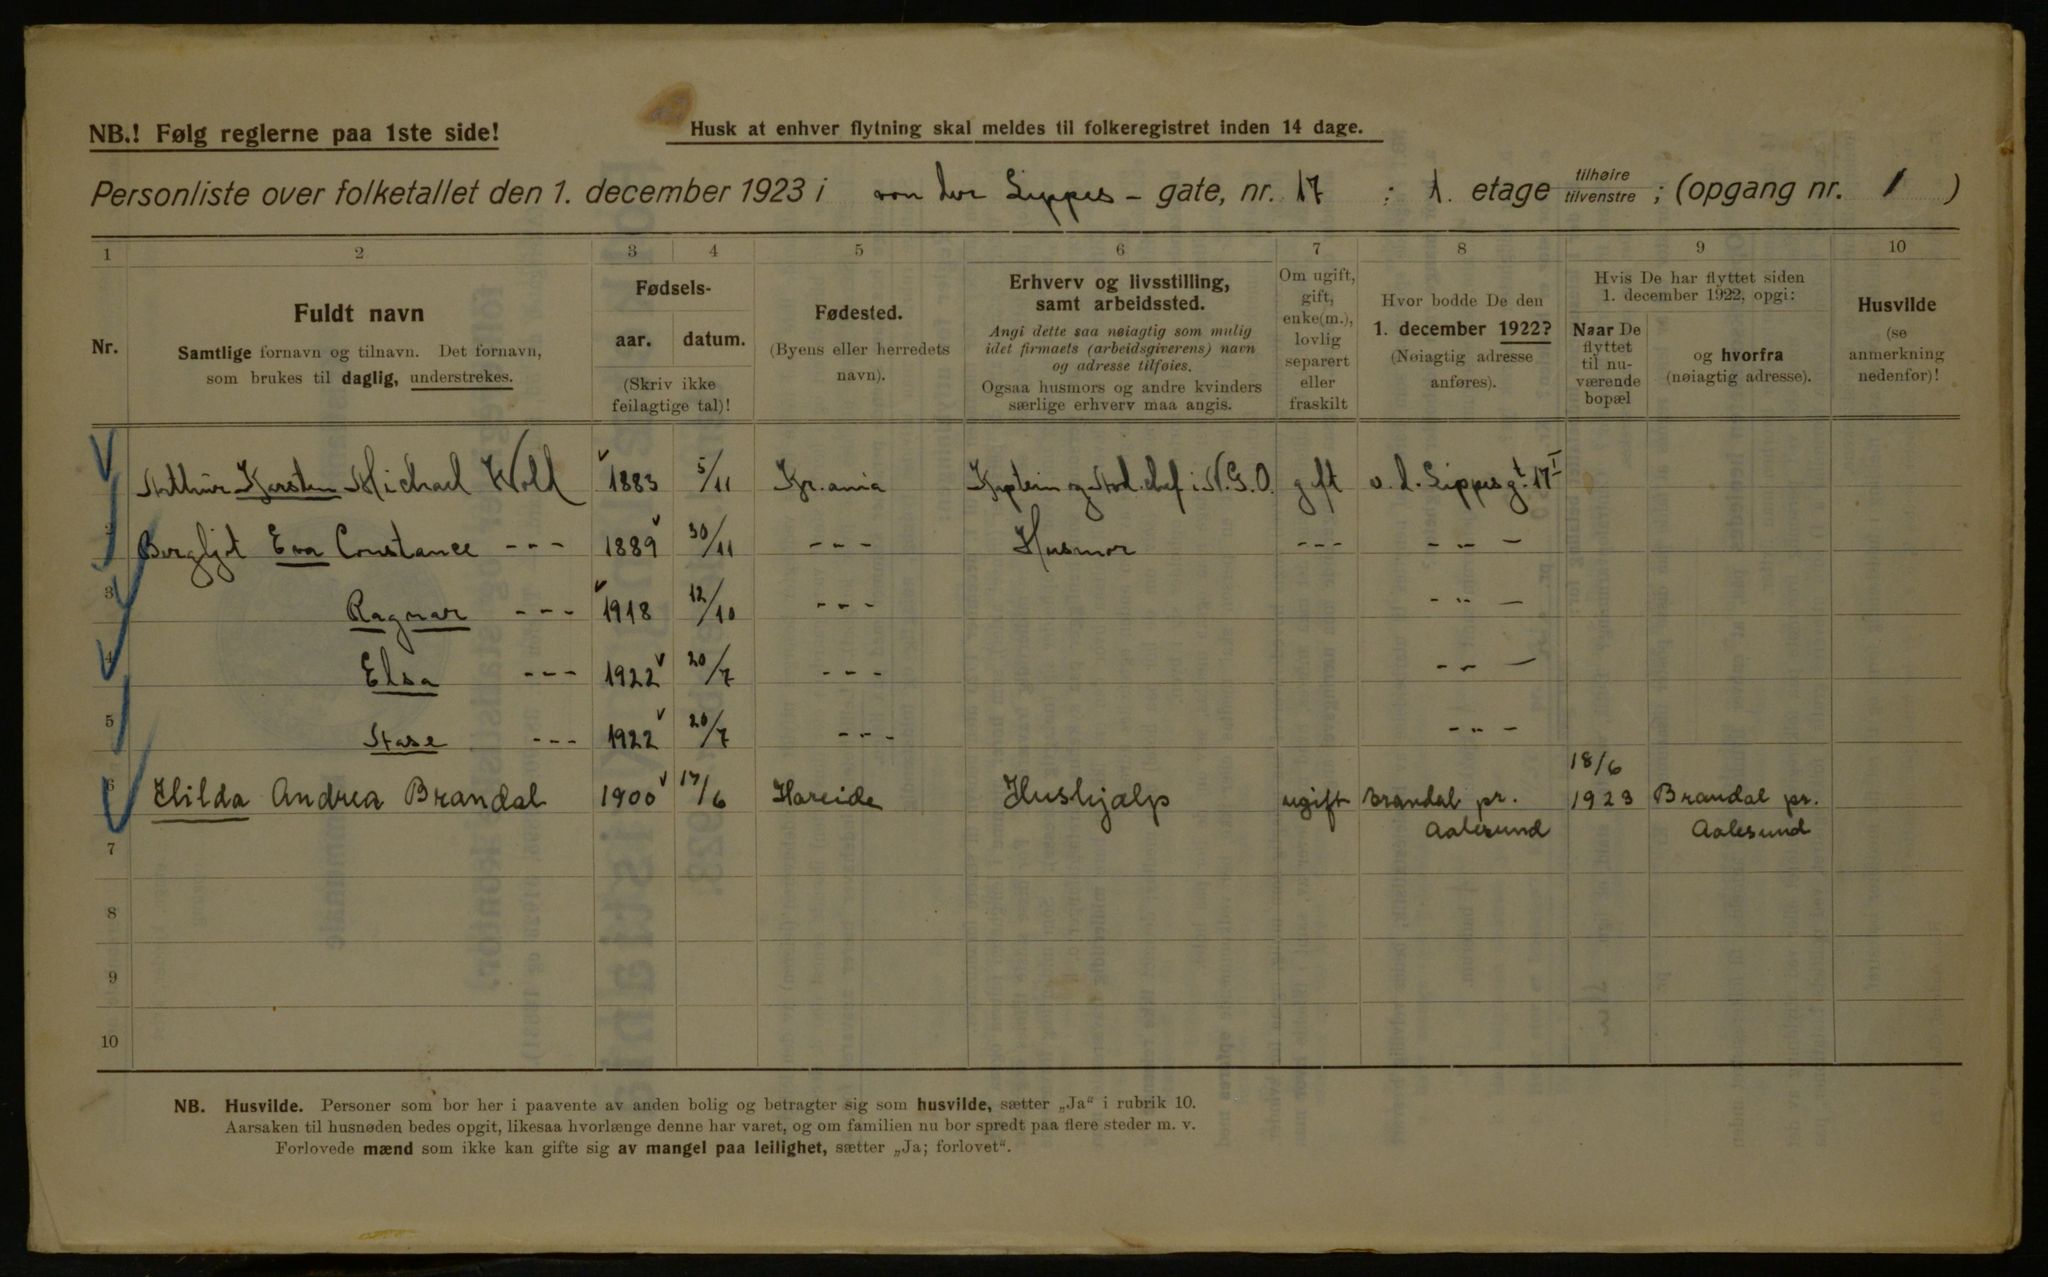 NB.! Følg reglerne paa 1ste side!
Husk at enhver flytning skal meldes til folkeregistret inden 14 dage.
Personliste over folketallet den 1. december 1923 i von der Lippes - gate, nr. 17 ; 1. etage tilhøire tilvenstre ; (opgang nr. 1 )
1 2 3 4 5 6 7 8 9 10
Nr.
Fuldt navn
Samtlige fornavn og tilnavn. Det fornavn,
som brukes til daglig, understrekes.
Fødsels-
aar. datum.
(Skriv ikke
feilagtige tal)!
Fødested.
(Byens eller herredets
navn).
Erhverv og livsstilling,
samt arbeidssted.
Angi dette saa nøiagtig som mulig
idet firmaets (arbeidsgiverens) navn
og adresse tilføies.
Ogsaa husmors og andre kvinders
særlige erhverv maa angis.
Om ugift,
gift,
enke(m.),
lovlig
separert
eller
fraskilt
Hvor bodde De den
1. december 1922?
(Nøiagtig adresse
anføres).
Hvis De har flyttet siden
1. december 1922, opgi:
Naar De
flyttet
til nu-
værende
bopæl
og hvorfra
(nøiagtig adresse).
Husvilde
(se
anmerkning
nedenfor)!
Arthur Karsten Michael Wold 1883 5/11 Kr.ania Kaptein og chef i N.G.O. gift v. d. Lippes gt. 17 I
2 Bergljot Eva Constance --- 1889 30/11 --- Husmor --- - " -
3 Ragnar --- 1918 12/10 --- - " -
4 Elsa --- 1922 20/7 --- - " -
5 Stase --- 1922 20/7 --- - " -
18/6
6 Hilda Andrea Brandal 1900 17/6 Hareide Hushjælp ugift Brandal pr. 1923 Brandal pr.
Aalesund Aalesund
7
8
9
10
NB. Husvilde. Personer som bor her i paavente av anden bolig og betragter sig som husvilde, sætter „Ja" i rubrik 10.
Aarsaken til husnøden bedes opgit, likesaa hvorlænge denne har varet, og om familien nu bor spredt paa flere steder m. v.
Forlovede mænd som ikke kan gifte sig av mangel paa leilighet, sætter „Ja; forlovet".